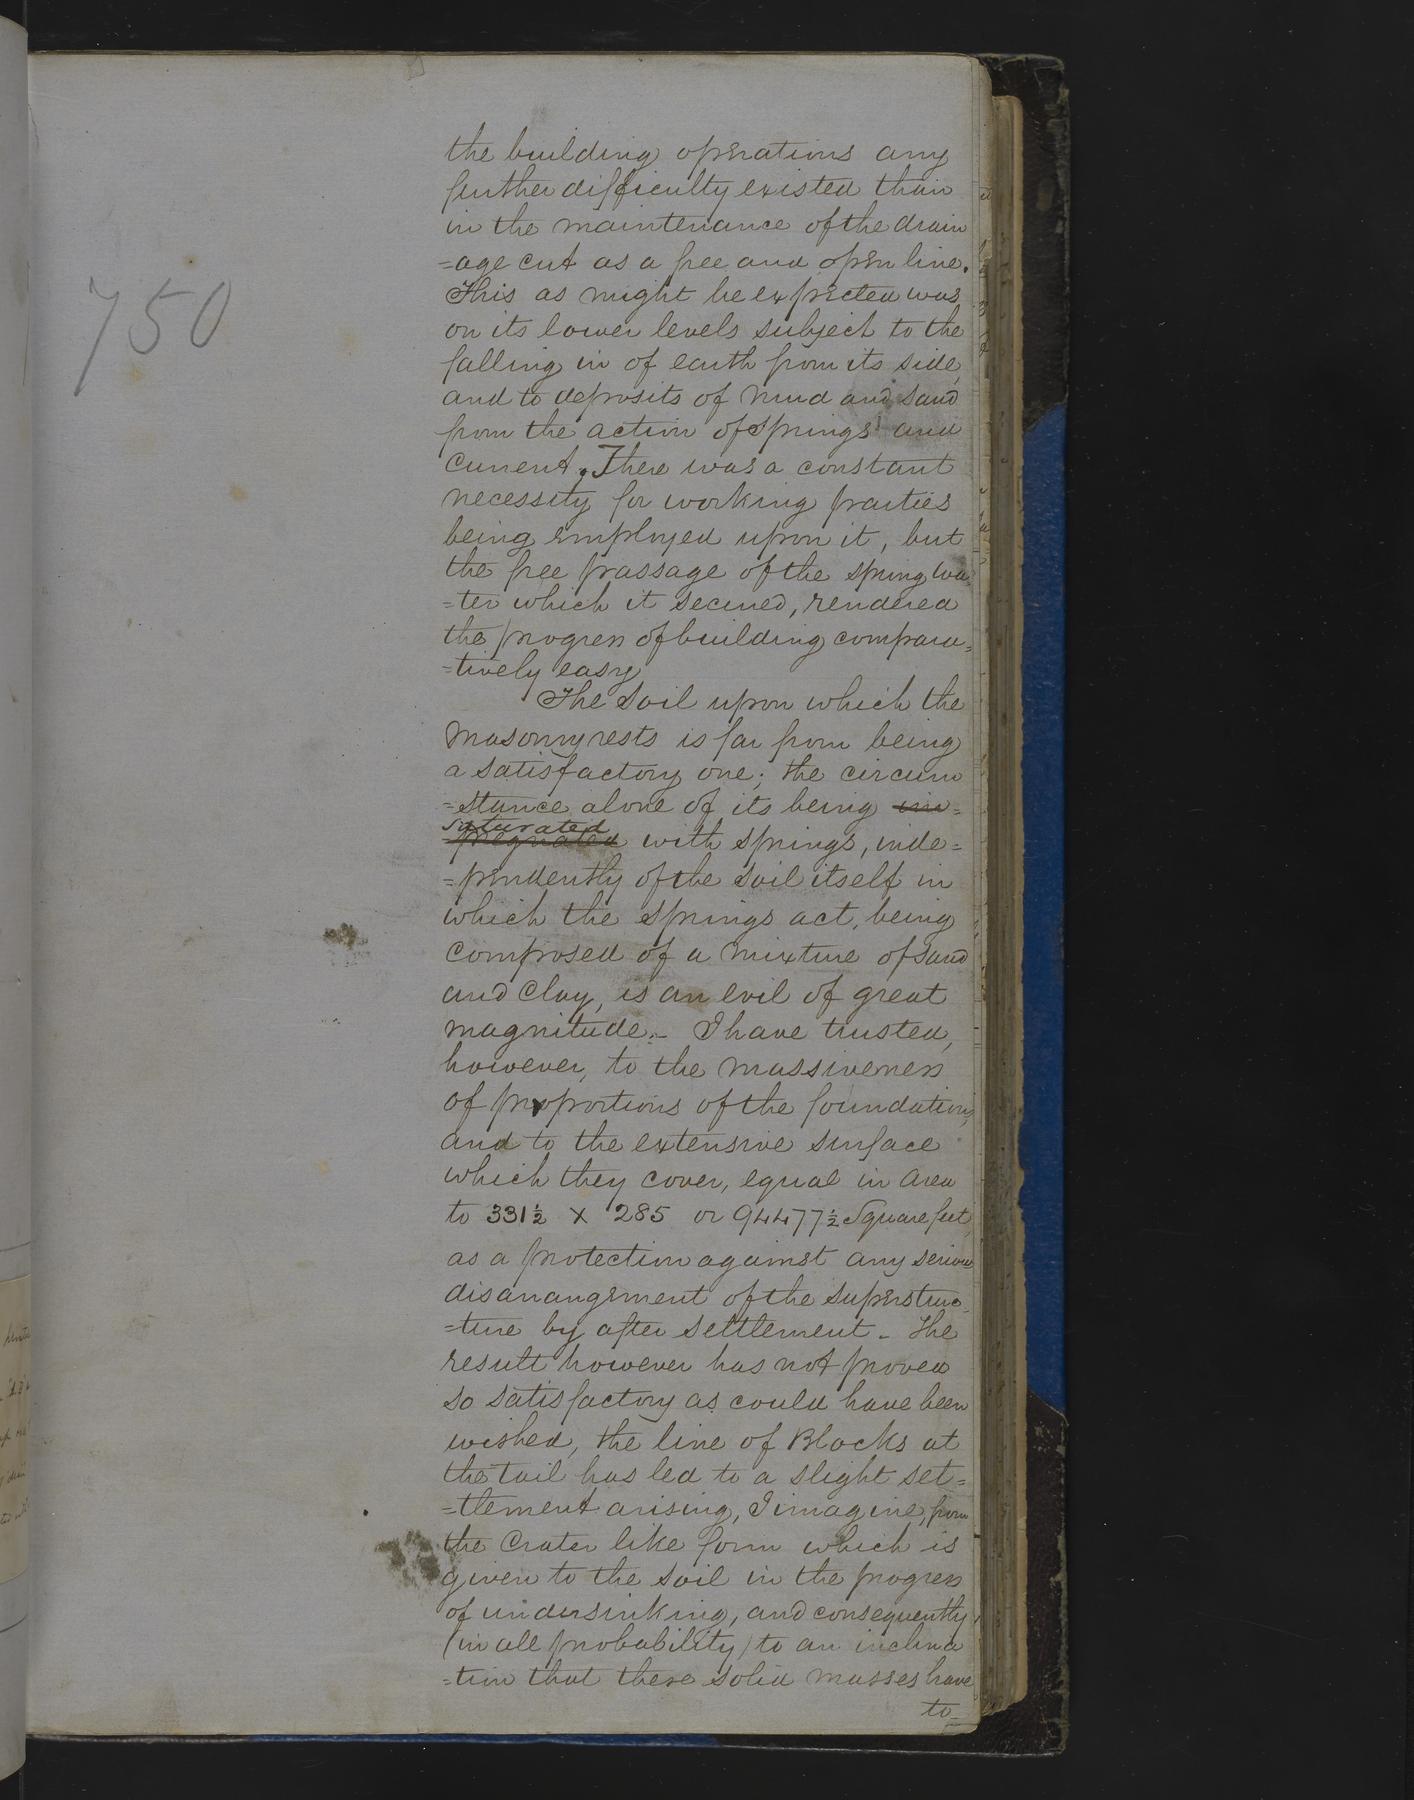 750
the building operations any
further difficulty existed than
in the maintenance of the drain
=age cut as a free and open line.
This as might be expected was
on its lower levels subject to the
falling in of earth from its side,
and to deposits of mud and sand
from the action of springs and
current. There was a constant
necessity for working parties
being employed upon it, but
the free passage of the spring wa
=ter which it secured, rendered
the progress of building compara=
=tively easy
The soil upon which the
masonry rests is far from being
a satisfactory one; the circum
=stance alone of its being im=
saturated
=pregnated with springs, inde=
=pendently of the soil itself in
which the springs act, being
composed of a mixture of sand
and clay, is an evil of great
magnitude.- I have trusted,
however, to the massiveness
of proportions of the foundations,
and to the extensive surface
which they cover, equal in area
to 331½ x 285 or 94477½ Square feet,
as a protection against any serious
disarrangement of the superstruc
=ture by after settlement - The
result however has not proved
so satisfactory as could have been
wished, the line of Blocks at
the tail has led to a slight set=
=tlement arising, I imagine, from
the Crater like form which is
given to the soil in the progress
of undersinking, and consequently
(in all probability) to an inclina
=tion that these solid masses have
to